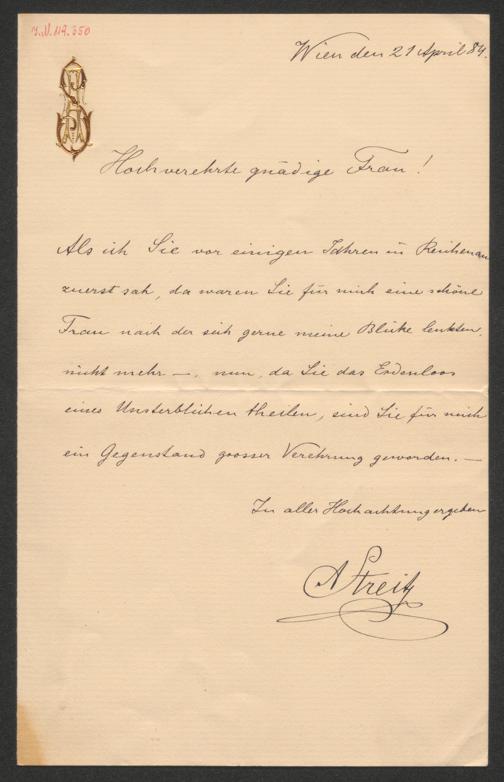 I.N. 119.350
Wien den 21 April 84.
Hochverehrte gnädige Frau!
Als ich Sie vor einigen Jahren in Reichenau
zuerst sah, da waren Sie für mich eine schöne
Frau nach der sich gerne meine Blicke lenkten,
nicht mehr —. nun, da Sie das Erdenloos
eines Unsterblichen theilen, sind Sie für mich
ein Gegenstand grosser Verehrung geworden. —
In aller Hochachtung ergeben
A Streit